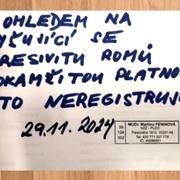 OHLEDEM NA
YŠUJÍCÍ SE
RESIVITU ROMŮ
OKAMŽITOU PLATNO
TO NEREGISTRUJ
29.11.2024
MUDr. Martina FEMINOVÁ